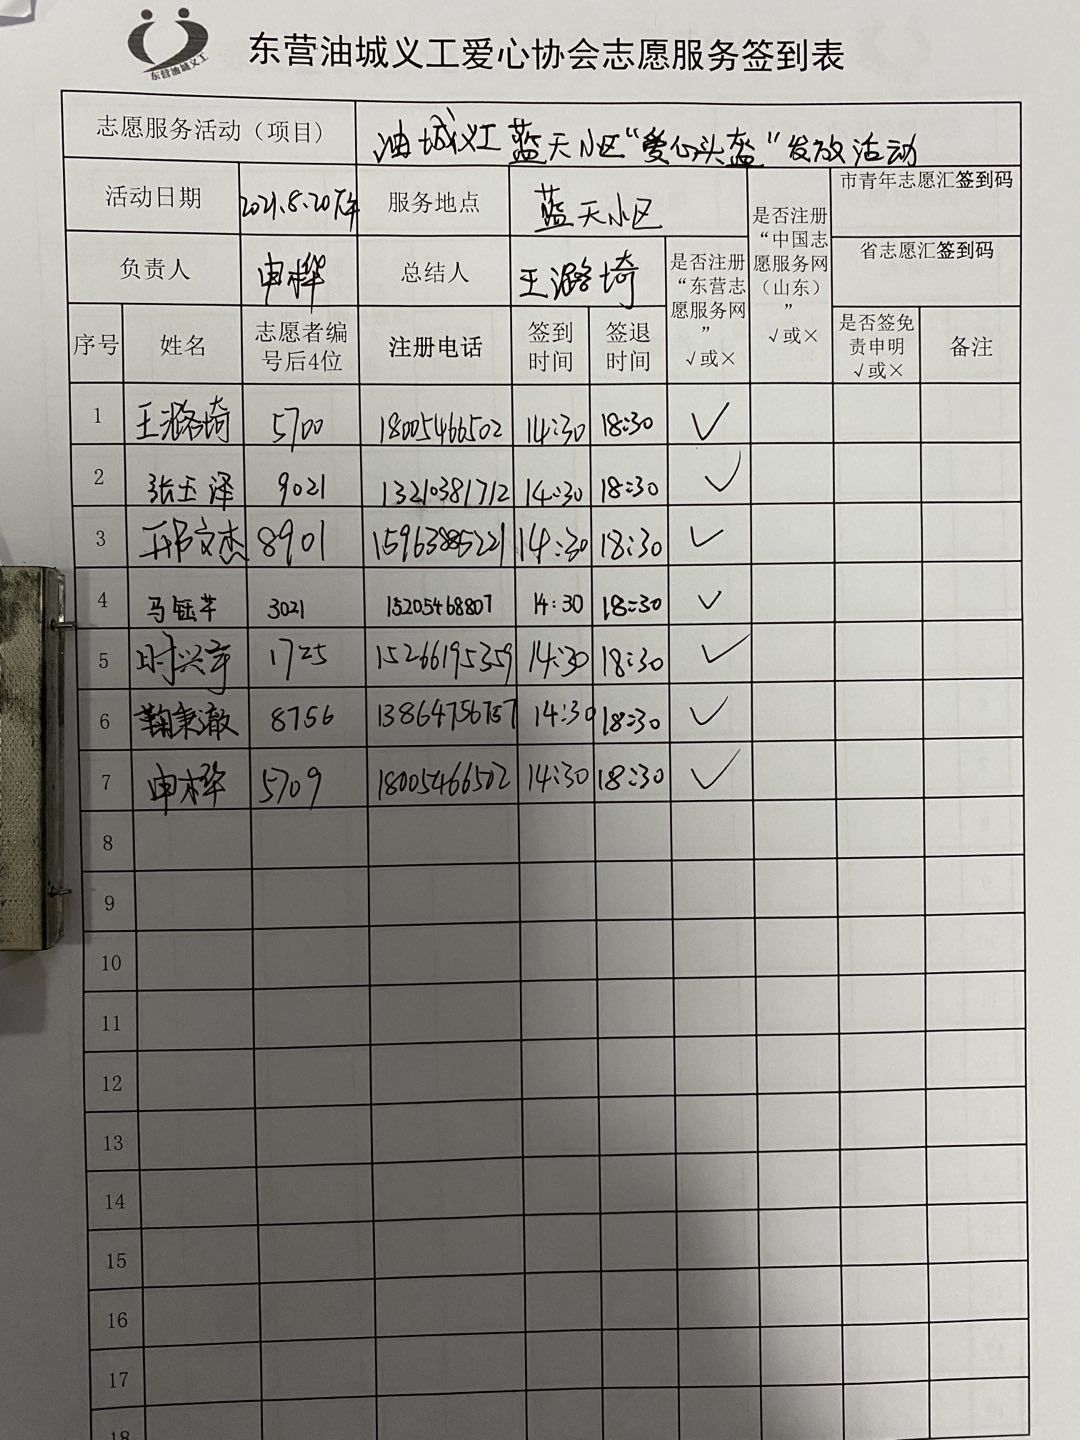 东营油城义工
东营油城义工爱心协会志愿服务签到表
志愿服务活动（项目） 油城义工蓝天小区“爱心头盔”发放活动
活动日期 2021.8.20下午 服务地点 蓝天小区 是否注册“中国志愿服务网（山东）” √或× 市青年志愿汇签到码
负责人 申桦 总结人 王潞埼 是否注册“东营志愿服务网” √或× 省志愿汇签到码
序号 姓名 志愿者编号后4位 注册电话 签到时间 签退时间 是否签免责申明 √或× 备注
1 王潞埼 5700 18005466502 14:30 18:30 ✓
2 张玉泽 9021 13210381712 14:30 18:30 ✓
3 邢文杰 8901 15963885221 14:30 18:30 ✓
4 马钰芊 3021 15205468807 14:30 18:30 ✓
5 时兴宇 1725 15266195359 14:30 18:30 ✓
6 鞠秉澈 8756 13864756757 14:30 18:30 ✓
7 申桦 5709 18005466502 14:30 18:30 ✓
8
9
10
11
12
13
14
15
16
17
18